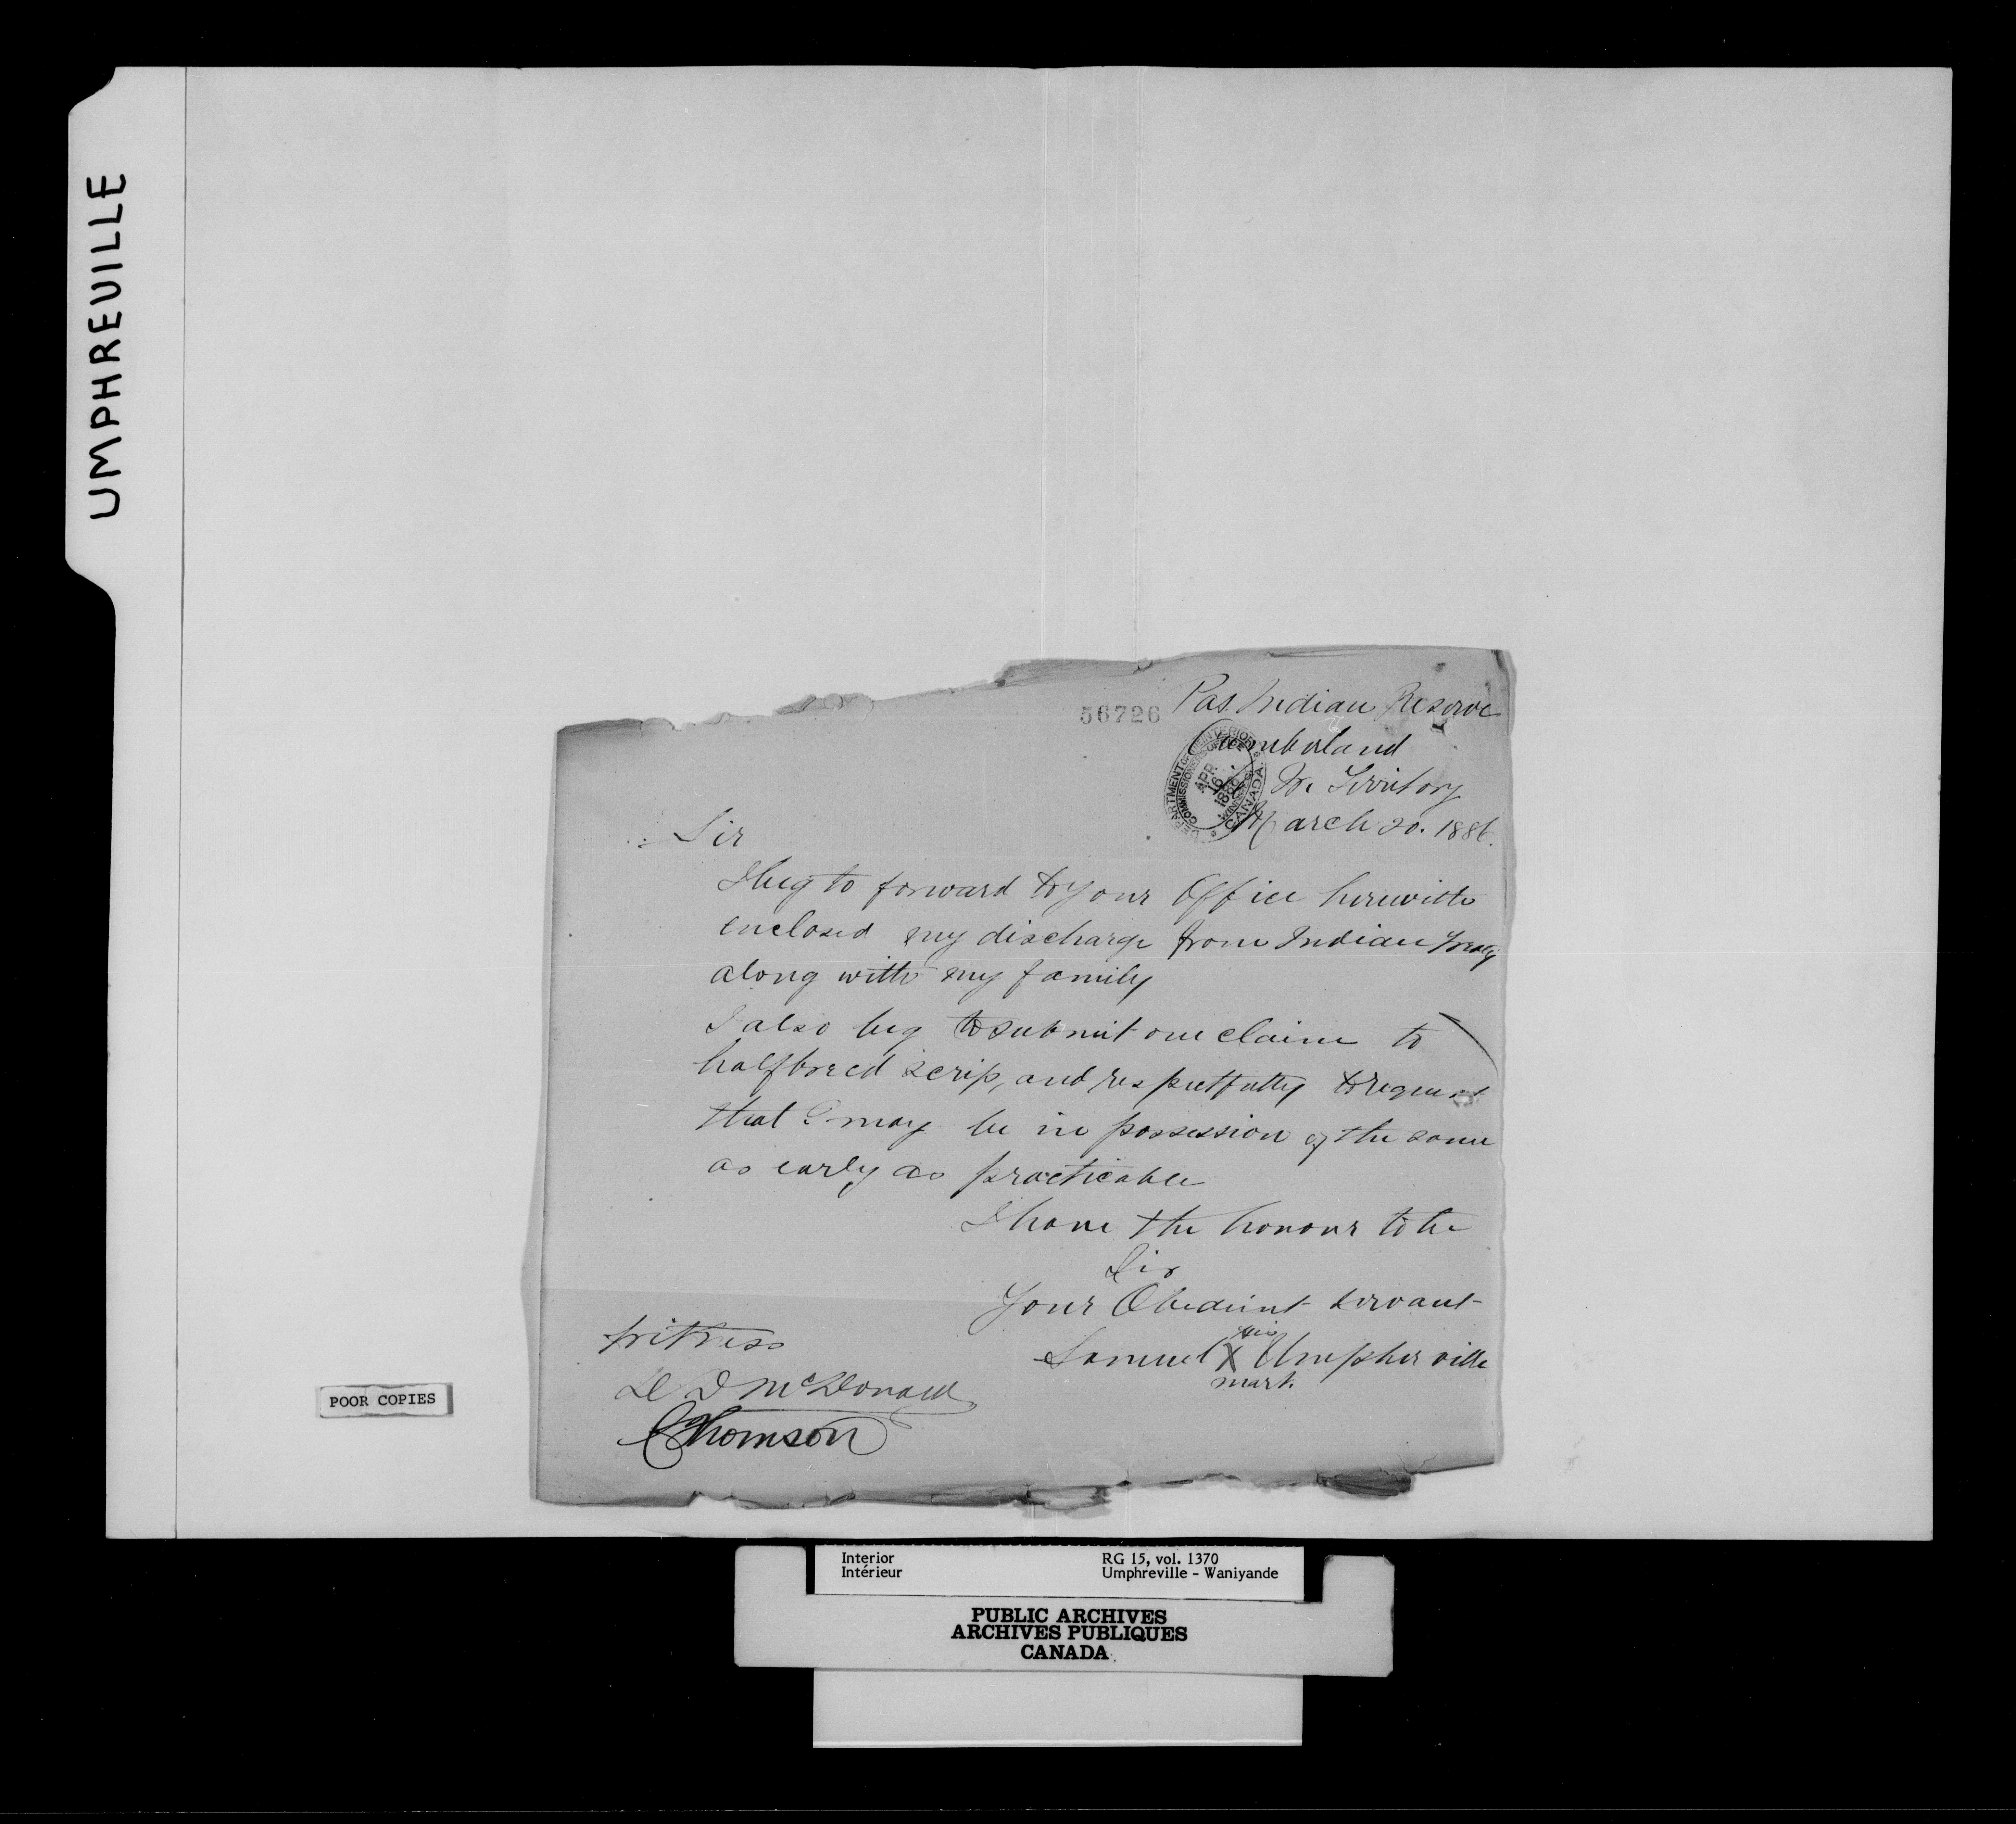 UMPHREUILLE
56726
Pas. Indian Reserve
Cumberland
N.W. Territory
March 20. 1886.
DEPARTMENT OF INTERIOR
COMMISSIONER'S OFFICE
APR 16 1886
WINNIPEG
CANADA
Sir
I beg to forward to your Office herewith
enclosed my discharge from Indian Treaty
along with my family
I also beg to submit our claim to
halfbreed scrip, and respectfully to request
that I may be in possession of the same
as early as practicable
I have the honour to be
Sir
Your Obedient servant
his
Samuel X Umpherville
mark.
Witness
McDonald
Thomson
POOR COPIES
Interior
Intérieur
RG 15, vol. 1370
Umphreville - Waniyande
PUBLIC ARCHIVES
ARCHIVES PUBLIQUES
CANADA